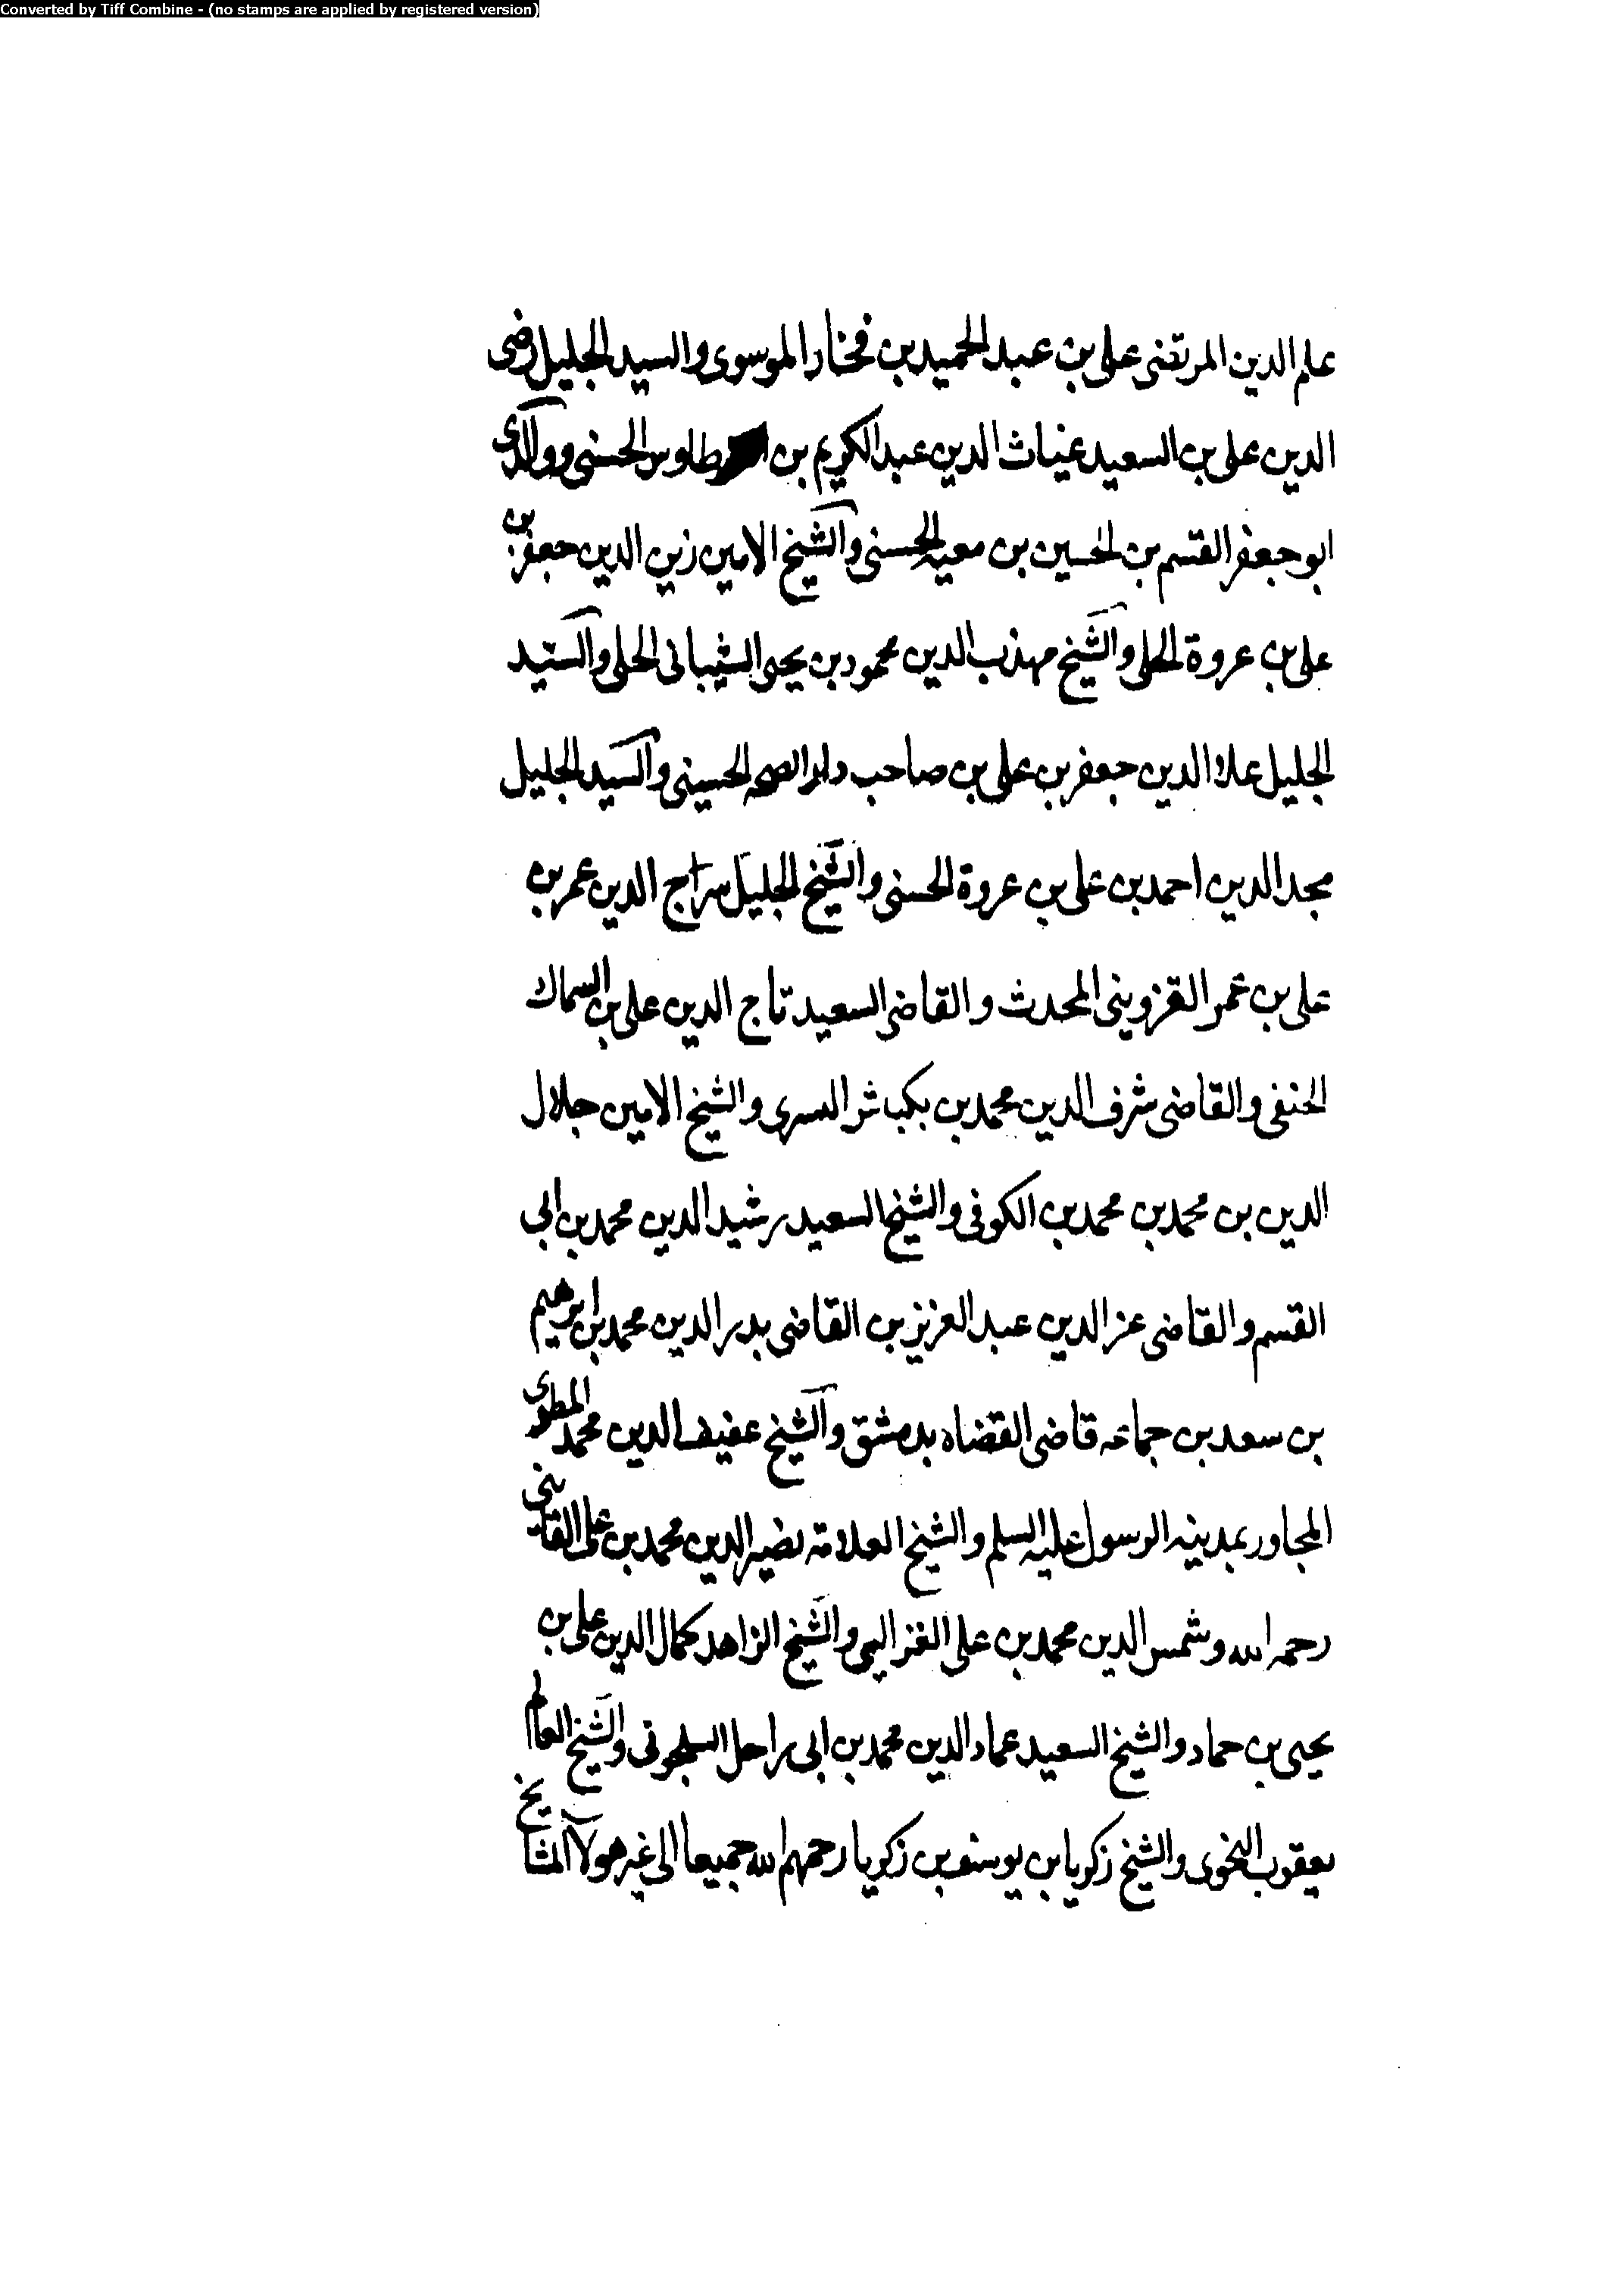 Converted by Tiff Combine - (no stamps are applied by registered version)
علم الدين المرتضى على بن عبد الحميد بن فخار الموسوى والسيد الجليل رضى
الدين على بن السعيد غياث الدين عبد الكريم بن طاوس الحسنى ووالدى
ابو جعفر القسم بن الحسين بن معيه الحسنى والشيخ الامين زين الدين جعفر بن
على بن عروة الحلى والشيخ مهذب الدين محمود بن يحيى الشيبانى الحلى والسيد
الجليل علا الدين جعفر بن على بن صاحب دار الصخر الحسينى والسيد الجليل
مجد الدين احمد بن على بن عروة الحسنى والشيخ الجليل سراج الدين عمر بن
على بن عمر القزوينى المحدث والقاضى السعيد تاج الدين على بن السماك
الحنفى والقاضى شرف الدين محمد بن بكتاش والشيخ الامين جلال
الدين بن محمد بن محمد بن الكوفى والشيخ السعيد رشيد الدين محمد بن ابى
القسم والقاضى عز الدين عبد العزيز بن القاضى بدر الدين محمد بن ابرهيم
بن سعد بن جماعه قاضى القضاه بدمشق والشيخ عفيف الدين محمد المطرى
المجاور بمدينه الرسول عليه السلم والشيخ العلامة نصير الدين محمد بن على القاينى
رحمه الله وشمس الدين محمد بن على والشيخ الزاهد كمال الدين على بن
يحيى بن حماد والشيخ السعيد عماد الدين محمد بن ابى راحل والشيخ العالم
يعقوب النحوى والشيخ زكريا بن يوسف بن زكريا رحمهم الله جميعا الى غير هولا المشايخ